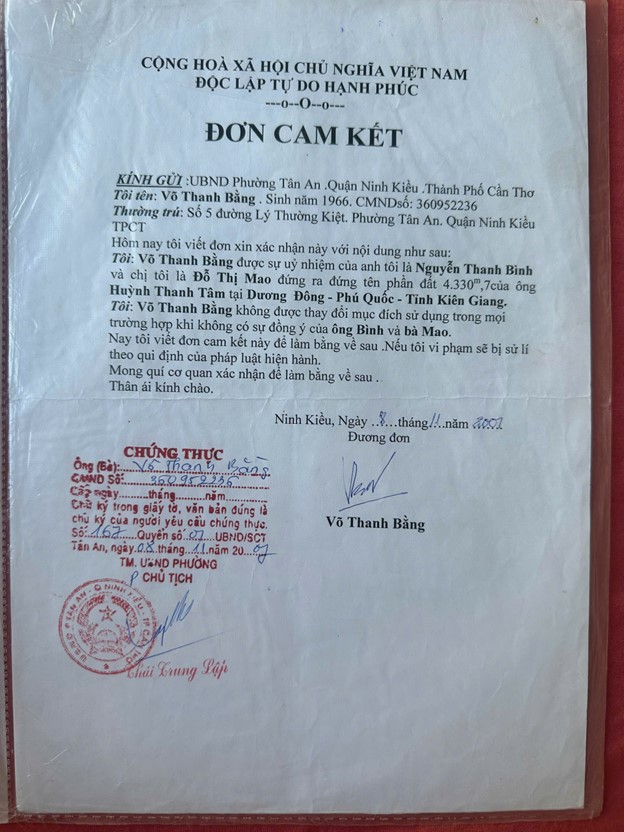 CỘNG HOÀ XÃ HỘI CHỦ NGHĨA VIỆT NAM
ĐỘC LẬP TỰ DO HẠNH PHÚC
---o--O--o---
ĐƠN CAM KẾT
KÍNH GỬI :UBND Phường Tân An .Quận Ninh Kiều .Thành Phố Cần Thơ
Tôi tên: Võ Thanh Bằng . Sinh năm 1966. CMNDsố: 360952236
Thường trú: Số 5 đường Lý Thường Kiệt. Phường Tân An. Quận Ninh Kiều
TPCT
Hôm nay tôi viết đơn xin xác nhận này với nội dung như sau:
Tôi: Võ Thanh Bằng được sự uỷ nhiệm của anh tôi là Nguyễn Thanh Bình
và chị tôi là Đỗ Thị Mao đứng ra đứng tên phần đất 4.330m,7của ông
Huỳnh Thanh Tâm tại Dương Đông - Phú Quốc - Tỉnh Kiên Giang.
Tôi: Võ Thanh Bằng không được thay đổi mục đích sử dụng trong mọi
trường hợp khi không có sự đồng ý của ông Bình và bà Mao.
Nay tôi viết đơn cam kết này để làm bằng về sau .Nếu tôi vi phạm sẽ bị sử lí
theo qui định của pháp luật hiện hành.
Mong quí cơ quan xác nhận để làm bằng về sau .
Thân ái kính chào.
Ninh Kiều, Ngày ..8...tháng.11.năm 2007
Đương đơn
Võ Thanh Bằng
CHỨNG THỰC
Ông (Bà): Võ Thanh Bằng
CMND Số: 360952236
Cấp ngày.......tháng.......năm.......
Chữ ký trong giấy tờ, văn bản đúng là
chữ ký của người yêu cầu chứng thực.
Số: 167 Quyển số 07 UBND/SCT
Tân An, ngày 08 tháng 11 năm 20 07
TM. UBND PHƯỜNG
P CHỦ TỊCH
Thái Trung Lập